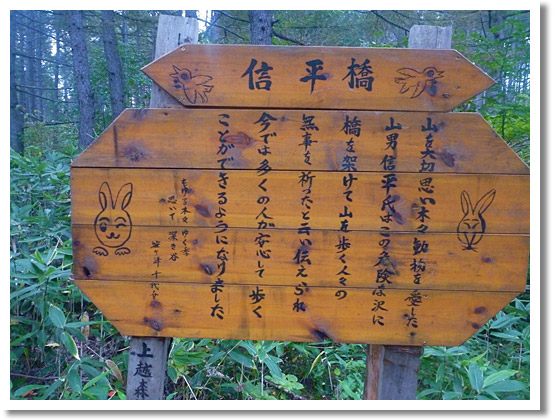 信平橋
山を大切思い木々動物を愛した
山男信平氏はこの危険な沢に
橋を架けて山を歩く人々の
無事を祈ったと云い伝えられ
今では多くの人が安心して歩く
ことができるようになりました
上越森